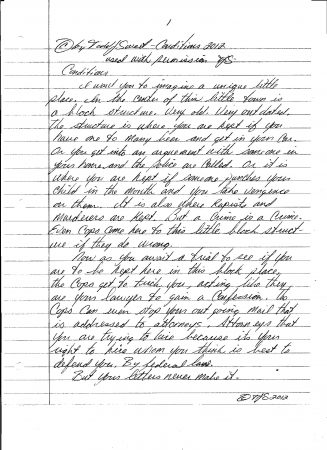 1
© by Sweat - Conditions 2012
used with permission
Conditions
I want you to imagine a unique little
place. In the center of this little town is
a block structure. Very old. Very outdated.
The structure is where you are kept if you
have one to many beer and get in your car.
Or you get into an argument with someone in
your home, and the police are called. Or it is
where you are kept if someone punches your
child in the mouth and you take vengence
on them. It is also where Rapists and
Murderers are kept. But a Crime is a Crime.
Even Cops come here to this little block struct-
ure if they do wrong.
Now as you await a trial to see if you
are to be kept here in this block place,
the Cops get to trick you, acting like they
are your lawyer to gain a Confession. The
Cops can even stop your out going mail that
is addressed to attorneys. Attorneys that
you are trying to hire because its your
right to hire whom you think is best to
defend you. By federal law.
But your letters never make it.
© 2012